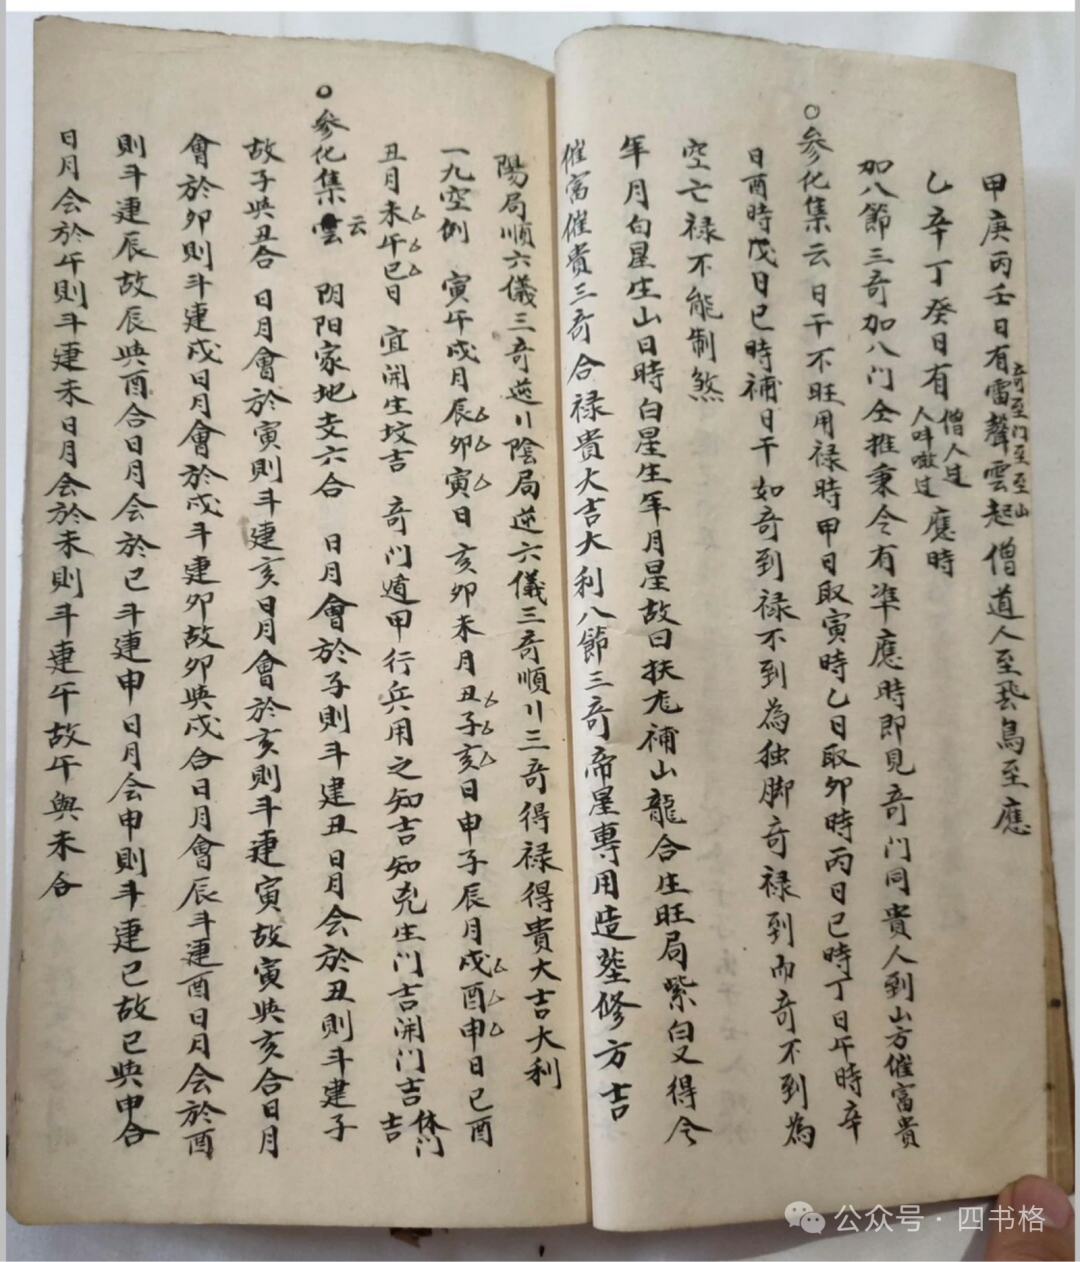 甲庚丙壬日有雷聲雲起僧道人至飛鳥至應
奇至门至至山
乙辛丁癸日有僧人过人呌噉过應時
加八節三奇加八门仝推秉令有準應時即見奇门同貴人到山方催富貴
○參化集云日干不旺用禄時甲日取寅時乙日取卯時丙日巳時丁日午時辛
日酉時戊日巳時補日干如奇到禄不到為独脚奇禄到而奇不到為
空亡禄不能制煞
年月白星生山日時白星生年月星故曰扶龙補山龍合生旺局紫白又得令
催富催貴三奇合禄貴大吉大利八節三奇帝星專用造塟修方吉
陽局順六儀三奇逆川陰局逆六儀三奇順川三奇得禄得貴大吉大利
一九空例 寅午戌月辰卯寅日亥卯未月丑子亥日申子辰月戌酉申日巳酉
丑月未午巳日 宜開生坟吉 奇门遁甲行兵用之知吉知兇生门吉開门吉休门吉
○參化集云 阴阳家地支六合 日月會於子則斗建丑日月会於丑則斗建子
故子與丑合 日月會於寅則斗建亥日月會於亥則斗建寅故寅與亥合日月
會於卯則斗建戌日月會於戌斗建卯故卯與戌合日月會辰斗建酉日月会於酉
則斗建辰故辰與酉合日月会於巳斗建申日月会申則斗建巳故巳與申合
日月会於午則斗建未日月会於未則斗建午故午與未合
公众号·四书格